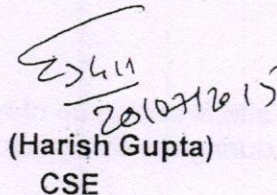 20/07/2015
(Harish Gupta)
CSE